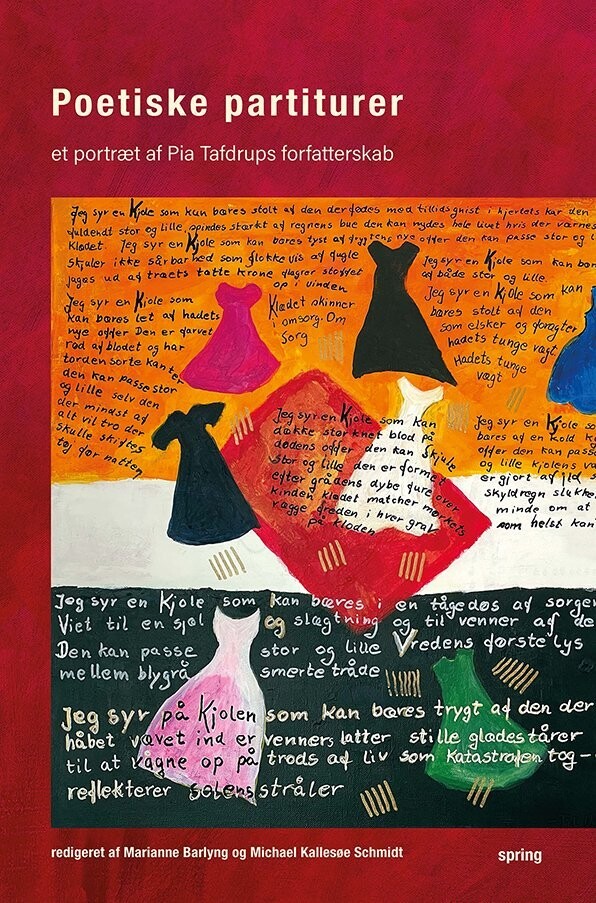 Poetiske partiturer
et portræt af Pia Tafdrups forfatterskab
Jeg syr en Kjole som kan bæres stolt af den der fødes med tillidsgnist i hjertets kar den
fuldendt stor og lille spindes stærkt af regnens bue den kan nydes hele livet hvis der værnes
Klædet Jeg syr en Kjole som kan bæres tyst af frygtens nye offer den kan passe stor og l
Skjuler ikke sårbarhed som flokkevis af fugle
jages ud af træets tatte krone flagrer stoffet
op i vinden
Klædet skinner
i omsorg. Om
Sorg
Jeg syr en Kjole som kan bær
af både stor og lille.
Jeg syr en Kjole som kan
bæres stolt af den
som elsker og
hadets tunge vægt
Hadets tunge
vægt
Jeg syr en Kjole som
kan bæres let af hadets
nye offer Den er farvet
rød af blodet og har
torden sorte kanter
den kan passe stor
og lille selv den
der mindst af
alt vil tro der
skulle skiftes
tøj før natten
Jeg syr en Kjole som kan
dække størknet blod på
dødens offer den kan skjule
stor og lille den er formet
efter grådens dybe fure over
kinden klædet matcher mørkets
vægge freden i hver grav
på kloden
Jeg syr en Kjole so
bæres af en kold k
offer den kan passe
og lille kjolens væ
er gjort af ild s
skyldregn slukke
minde om at
som helst kan
Jeg syr en Kjole som kan bæres i en tågedøs af sorgen
Viet til en sjæl og slægtning og til venner af de
Den kan passe stor og lille Vredens første lys
mellem blygrå smerte tråde
Jeg syr på Kjolen som kan bæres trygt af den der
håbet vævet ind er venners latter stille glædestårer
til at vågne op på trods af liv som Katastrofen tog -
reflekterer solens stråler
redigeret af Marianne Barlyng og Michael Kallesøe Schmidt
spring